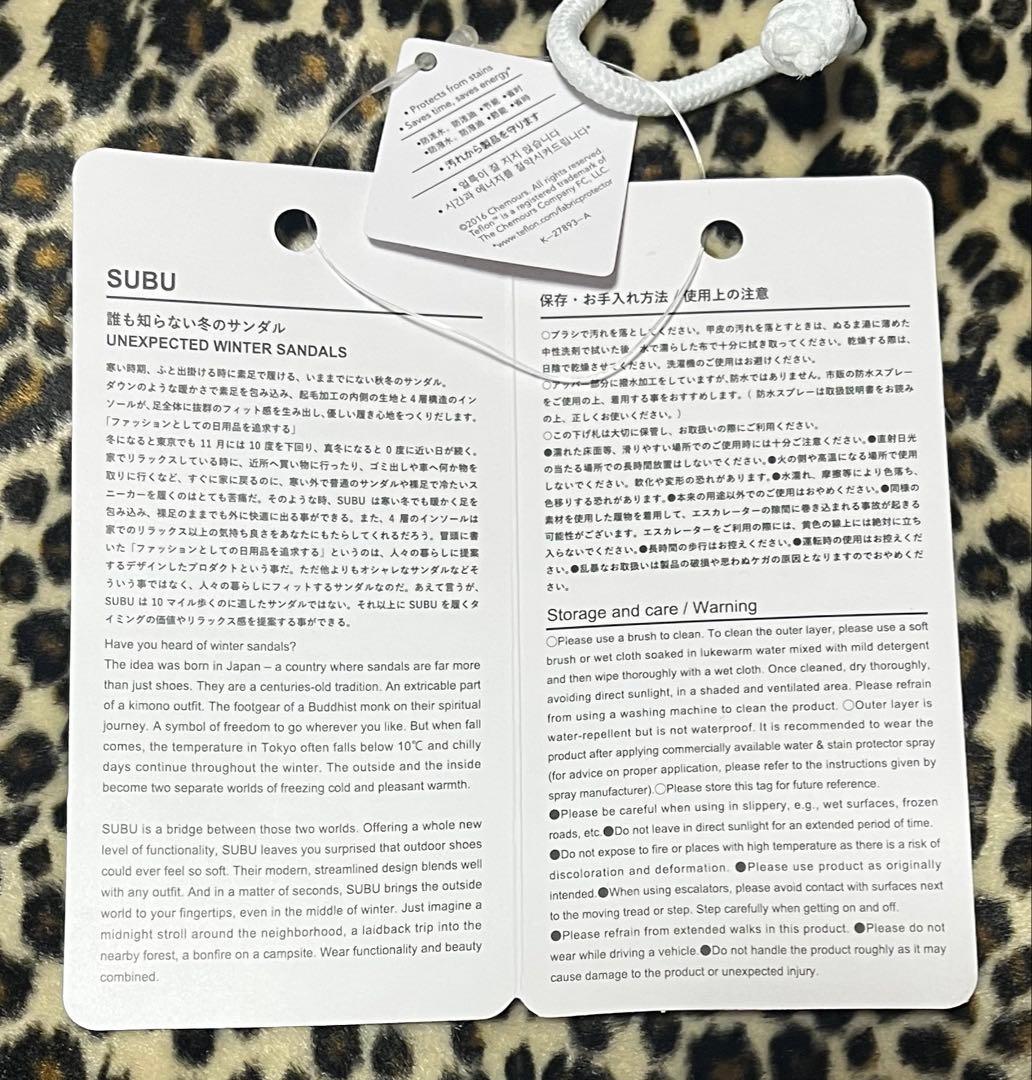 • Protects from stains
• Saves time, saves energy*
•防泼水、防泼油 •节能 •省时
•防潑水、防潑油 •節能 •省時
• 汚れから製品を守ります
• 얼룩이 잘 지지 않습니다
• 시간과 에너지를 절약시켜드립니다*
©2016 Chemours. All rights reserved.
Teflon™ is a registered trademark of
The Chemours Company FC, LLC.
*www.teflon.com/fabricprotector
K-27893-A
SUBU
誰も知らない冬のサンダル
UNEXPECTED WINTER SANDALS
寒い時期、ふと出掛ける時に素足で履ける、いままでにない秋冬のサンダル。
ダウンのような暖かさで素足を包み込み、起毛加工の内側の生地と4層構造のイン
ソールが、足全体に抜群のフィット感を生み出し、優しい履き心地をつくりだします。
「ファッションとしての日用品を追求する」
冬になると東京でも 11 月には 10 度を下回り、真冬になると 0 度に近い日が続く。
家でリラックスしている時に、近所へ買い物に行ったり、ゴミ出しや車へ何か物を
取りに行くなど、すぐに家に戻るのに、寒い外で普通のサンダルや裸足で冷たいス
ニーカーを履くのはとても苦痛だ。そのような時、SUBU は寒い冬でも暖かく足を
包み込み、裸足のままでも外に快適に出る事ができる。また、4 層のインソールは
家でのリラックス以上の気持ち良さをあなたにもたらしてくれるだろう。冒頭に書
いた「ファッションとしての日用品を追求する」というのは、人々の暮らしに提案
するデザインしたプロダクトという事だ。ただ他よりもオシャレなサンダルなどそ
ういう事ではなく、人々の暮らしにフィットするサンダルなのだ。あえて言うが、
SUBU は 10 マイル歩くのに適したサンダルではない。それ以上に SUBU を履くタ
イミングの価値やリラックス感を提案する事ができる。
Have you heard of winter sandals?
The idea was born in Japan – a country where sandals are far more
than just shoes. They are a centuries-old tradition. An extricable part
of a kimono outfit. The footgear of a Buddhist monk on their spiritual
journey. A symbol of freedom to go wherever you like. But when fall
comes, the temperature in Tokyo often falls below 10℃ and chilly
days continue throughout the winter. The outside and the inside
become two separate worlds of freezing cold and pleasant warmth.
SUBU is a bridge between those two worlds. Offering a whole new
level of functionality, SUBU leaves you surprised that outdoor shoes
could ever feel so soft. Their modern, streamlined design blends well
with any outfit. And in a matter of seconds, SUBU brings the outside
world to your fingertips, even in the middle of winter. Just imagine a
midnight stroll around the neighborhood, a laidback trip into the
nearby forest, a bonfire on a campsite. Wear functionality and beauty
combined.
保存・お手入れ方法 / 使用上の注意
○ブラシで汚れを落としてください。甲皮の汚れを落とすときは、ぬるま湯に薄めた
中性洗剤で拭いた後、水で濡らした布で十分に拭き取ってください。乾燥する際は、
日陰で乾燥させてください。洗濯機のご使用はお避けください。
○アッパー部分に撥水加工をしていますが、防水ではありません。市販の防水スプレー
をご使用の上、着用する事をおすすめします。（ 防水スプレーは取扱説明書をお読み
の上、正しくお使いください。）
○この下げ札は大切に保管し、お取扱いの際にご利用ください。
●濡れた床面等、滑りやすい場所でのご使用時には十分ご注意ください。●直射日光
の当たる場所での長時間放置はしないでください。●火の側や高温になる場所で使用
しないでください。軟化や変形の恐れがあります。●水濡れ、摩擦等により色落ち、
色移りする恐れがあります。●本来の用途以外でのご使用はおやめください。●同様の
素材を使用した履物を着用して、エスカレーターの隙間に巻き込まれる事故が起きる
可能性がございます。エスカレーターをご利用の際には、黄色の線上には絶対に立ち
入らないでください。●長時間の歩行はお控えください。●運転時の使用はお控えくだ
さい。●乱暴なお取扱いは製品の破損や思わぬケガの原因となりますのでおやめくだ
さい。
Storage and care / Warning
○Please use a brush to clean. To clean the outer layer, please use a soft
brush or wet cloth soaked in lukewarm water mixed with mild detergent
and then wipe thoroughly with a wet cloth. Once cleaned, dry thoroughly,
avoiding direct sunlight, in a shaded and ventilated area. Please refrain
from using a washing machine to clean the product. ○Outer layer is
water-repellent but is not waterproof. It is recommended to wear the
product after applying commercially available water & stain protector spray
(for advice on proper application, please refer to the instructions given by
spray manufacturer).○Please store this tag for future reference.
●Please be careful when using in slippery, e.g., wet surfaces, frozen
roads, etc.●Do not leave in direct sunlight for an extended period of time.
●Do not expose to fire or places with high temperature as there is a risk of
discoloration and deformation. ●Please use product as originally
intended.●When using escalators, please avoid contact with surfaces next
to the moving tread or step. Step carefully when getting on and off.
●Please refrain from extended walks in this product. ●Please do not
wear while driving a vehicle.●Do not handle the product roughly as it may
cause damage to the product or unexpected injury.